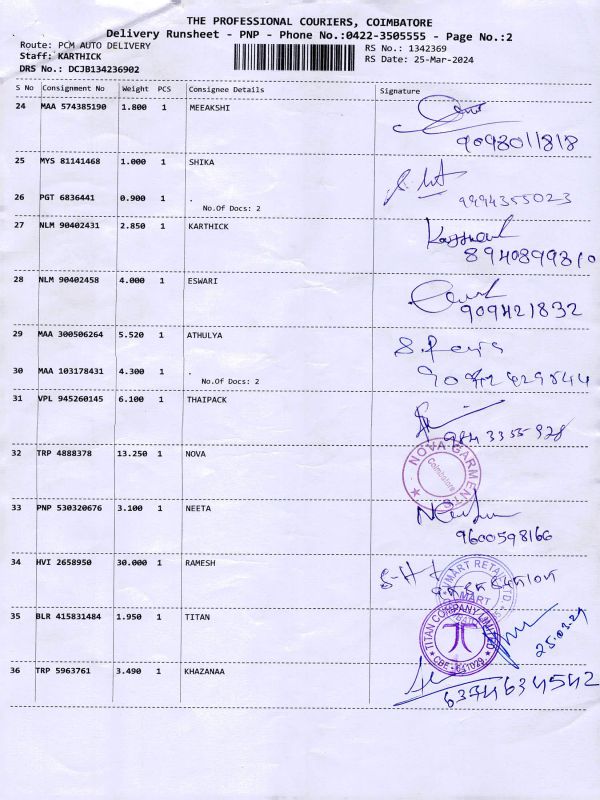 THE PROFESSIONAL COURIERS, COIMBATORE
Delivery Runsheet - PNP - Phone No.:0422-3505555 - Page No.:2
Route: PCM AUTO DELIVERY RS No.: 1342369
Staff: KARTHICK RS Date: 25-Mar-2024
DRS No.: DCJB134236902
S No Consignment No Weight PCS Consignee Details Signature
24 MAA 574385190 1.800 1 MEEAKSHI
9093011818
25 MYS 81141468 1.000 1 SHIKA
26 PGT 6836441 0.900 1 . 9994355023
No.Of Docs: 2
27 NLM 90402431 2.850 1 KARTHICK
8940899310
28 NLM 90402458 4.000 1 ESWARI
909421832
29 MAA 300506264 5.520 1 ATHULYA
30 MAA 103178431 4.300 1 .
No.Of Docs: 2
31 VPL 945260145 6.100 1 THAIPACK
9843355928
32 TRP 4888378 13.250 1 NOVA
NOVA GARMENTS
Coimbatore
33 PNP 530320676 3.100 1 NEETA
9600598166
34 HVI 2658950 30.000 1 RAMESH
35 BLR 415831484 1.950 1 TITAN
TITAN COMPANY LIMITED
CBE - 641029
25.03.24
36 TRP 5963761 3.490 1 KHAZANAA
6374634542